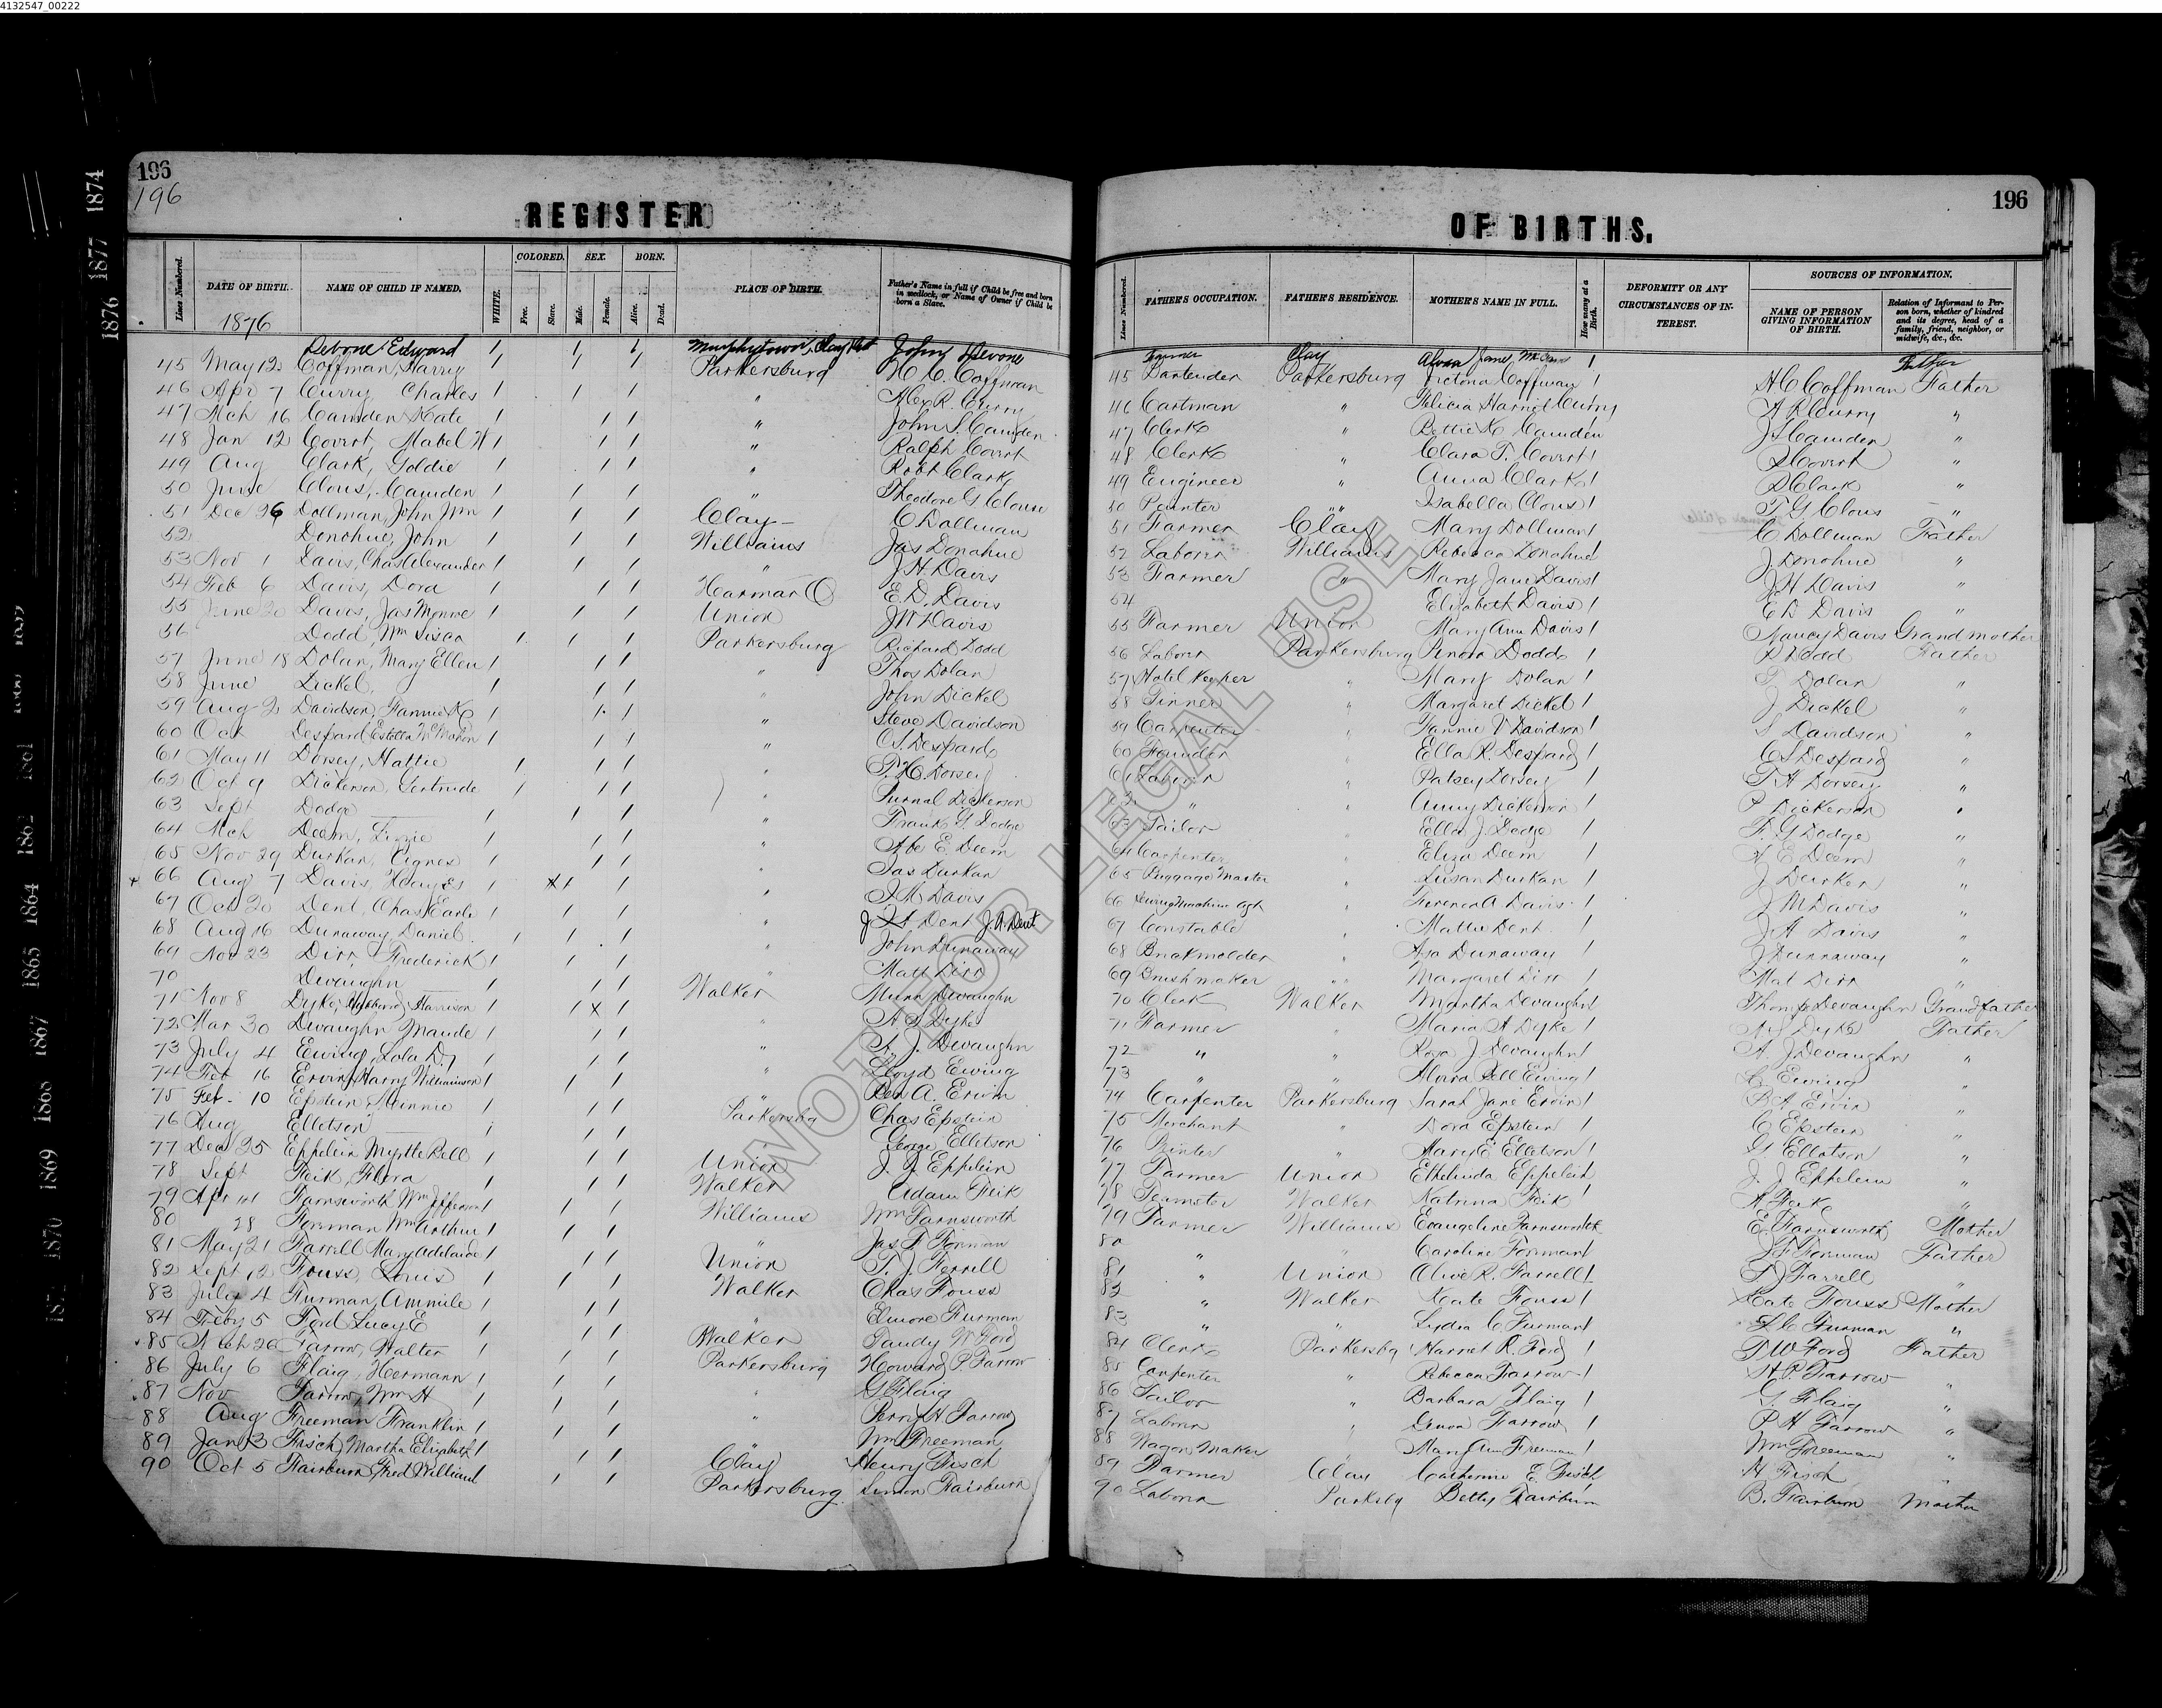 4132547_00222
196
196
REGISTER
Lines Numbered.
DATE OF BIRTH.
1876
NAME OF CHILD IF NAMED.
WHITE.
COLORED.
Free.
Slave.
SEX.
Male.
Female.
BORN.
Alive.
Dead.
PLACE OF BIRTH.
Father's Name in full if Child be free and born in wedlock, or Name of Owner if Child be born a Slave.
Devone Edward Murphytown, Clay John Devone
45 May 12 Coffman, Harry Parkersburg H C. Coffman
46 Apr 7 Curry Charles " R. Curry
47 Mch 16 Camden Kate " John S. Camden
48 Jan 12 Covert, Mabel W " Ralph Covert
49 Aug Clark, Goldie " Robt Clark
50 June Clous, Camden " Theodore G Clouse
51 Dec 26 Dollman, John Wm Clay C Dollman
52 Donohue, John Williams Jas Donahue
53 Nov 1 Davis, Chas Alexander " J. H. Davis
54 Feb 6 Davis, Dora Harmar O E. D. Davis
55 June 20 Davis, Jas Monroe Union J W Davis
56 Dodd, Wm Parkersburg Richard Dodd
57 June 18 Dolan, Mary Ellen " Thos Dolan
58 June Dickel, " John Dickel
59 Aug 2 Davidson, Fannie K " Steve Davidson
60 Oct Despard, Estella McMahon " C. S. Despard
61 May 11 Dorsey, Hattie " Dorsey
62 Oct 9 Dickerson, Gertrude " Purnal Dickerson
63 Sept Dodge " Frank G. Dodge
64 Mch Deem, Lizzie " Abe E. Deem
65 Nov 29 Durkan, Agnes " Jas Durkan
66 Aug 7 Davis, Hayes " J. M. Davis
67 Oct 20 Dent, Chas Earle " Dent J. A. Dent
68 Aug 16 Dunaway Daniel " John Dunaway
69 Nov 23 Dirr, Frederick " Matt Dirr
70 Devaughn Walker Devaughn
71 Nov 8 Dyke, Harrison " A S Dyke
72 Mar 30 Devaughn Maude " A. J. Devaughn
73 July 4 Ewing, Lola D. " Lloyd Ewing
74 Feb 16 Ervin, Harry Williamson " A. Erwin
75 Feb. 10 Epstein, Minnie Parkersbg Chas Epstein
76 Aug Elletson George Elletson
77 Dec 25 Eppelein Myrtle Bell Union J. J. Epplein
78 Sept Feik, Flora Walker Adam Feik
79 Apr Farnsworth Wm Jefferson Williams Wm Farnsworth
80 28 Forman Wm Arthur " Jas F Forman
81 May 21 Farrell Mary Adelaide Union T. J. Ferrell
82 Sept 12 Fouss, Louis Walker Chas Fouss
83 July 4 Furman, Ammile " Elmore Furman
84 Feby 5 Ford Lucy E Walker W Ford
85 Farrow, Walter Parkersburg Howard P. Farrow
86 July 6 Flaig, Hermann " G Flaig
87 Nov Farrow, Wm H " Perry H Farrow
88 Aug Freeman Franklin " Wm Freeman
89 Jan 3 Fisch, Martha Elizabeth Clay Henry Fisch
90 Oct 5 Fairburn, Fred William Parkersburg Simon Fairburn
OF BIRTHS.
196
Lines Numbered.
FATHER'S OCCUPATION.
FATHER'S RESIDENCE.
MOTHER'S NAME IN FULL.
How many at a Birth.
DEFORMITY OR ANY CIRCUMSTANCES OF INTEREST.
SOURCES OF INFORMATION.
NAME OF PERSON GIVING INFORMATION OF BIRTH.
Relation of Informant to Person born, whether of kindred and its degree, head of a family, friend, neighbor, or midwife, &c., &c.
Farmer Clay Jane Father
45 Bartender Parkersburg Victoria Coffman 1 H C Coffman Father
46 Cartman " Felicia Harriet Curry A R Curry "
47 Clerk " Bettie K Camden J S Camden "
48 Clerk " Clara T. Covert 1 R Covert "
49 Engineer " Anna Clark 1 R Clark "
50 Painter " Isabella Clous 1 T G Clous "
51 Farmer Clay Mary Dollman 1 C Dollman Father
52 Laborer Williams Rebecca Donahue 1 J. Donohue "
53 Farmer " Mary Jane Davis 1 J H Davis "
54 Elizabeth Davis 1 E D Davis "
55 Farmer Union Mary Ann Davis 1 Nancy Davis Grandmother
56 Laborer Parkersburg Dodd 1 R Dodd Father
57 Hotel Keeper " Mary Dolan 1 T Dolan "
58 Tinner " Margaret Dickel 1 J Dickel "
59 Carpenter " Fannie V Davidson 1 S Davidson "
60 Founder " Ella R. Despard 1 C S Despard "
61 Laborer " Patsey Dorsey 1 Dorsey "
62 " " Anny Dickerson 1 P Dickerson "
63 Tailor " Ella J. Dodge 1 F. G Dodge "
64 Carpenter " Eliza Deem 1 A E Deem "
65 Baggage Master " Susan Durkan 1 J Durken "
66 Sewing Machine Agt " Davis 1 J M Davis "
67 Constable " Mattie Dent 1 J A Davis "
68 Brickmolder " Dunaway 1 J Dunnaway "
69 Brushmaker " Margaret Dirr 1 Mat Dirr "
70 Clerk Walker Martha Devaughn 1 Devaughn Grandfather
71 Farmer " Maria A Dyke 1 A S Dyke Father
72 " " Rosa J. Devaughn 1 A. J Devaughn "
73 " " Bell Ewing 1 L Ewing "
74 Carpenter Parkersburg Sarah Jane Ervin 1 Ervin "
75 Merchant " Dora Epstein 1 C Epstein "
76 Printer " Mary E Elletson 1 G Elletson "
77 Farmer Union Ethelinda Eppelein J. J Eppelein "
78 Teamster Walker Katrina Feik 1 A Feik "
79 Farmer Williams Evangeline Farnsworth E. Farnsworth Mother
80 " " Caroline Forman 1 J F Forman Father
81 " Union Olive R. Farrell 1 T J Farrell "
82 " Walker Kate Fouss 1 Kate Fouss Mother
83 " " Lydia C Furman 1 L C Furman "
84 Clerk Parkersbg Harriet R. Ford 1 Ford Father
85 Carpenter " Rebecca Farrow 1 H. P. Farrow "
86 Tailor " Barbara Flaig 1 G. Flaig "
87 Laborer " Farrow 1 P H Farrow "
88 Wagon Maker " Mary Ann Freeman 1 Wm Freeman "
89 Farmer Clay Catherine E. Fisch H Fisch "
90 Laborer Parksbg Betty Fairburn B. Fairburn Mother
1874
1877
1876
1861
1862
1864
1865
1867
1868
1869
1870
NOT FOR LEGAL USE